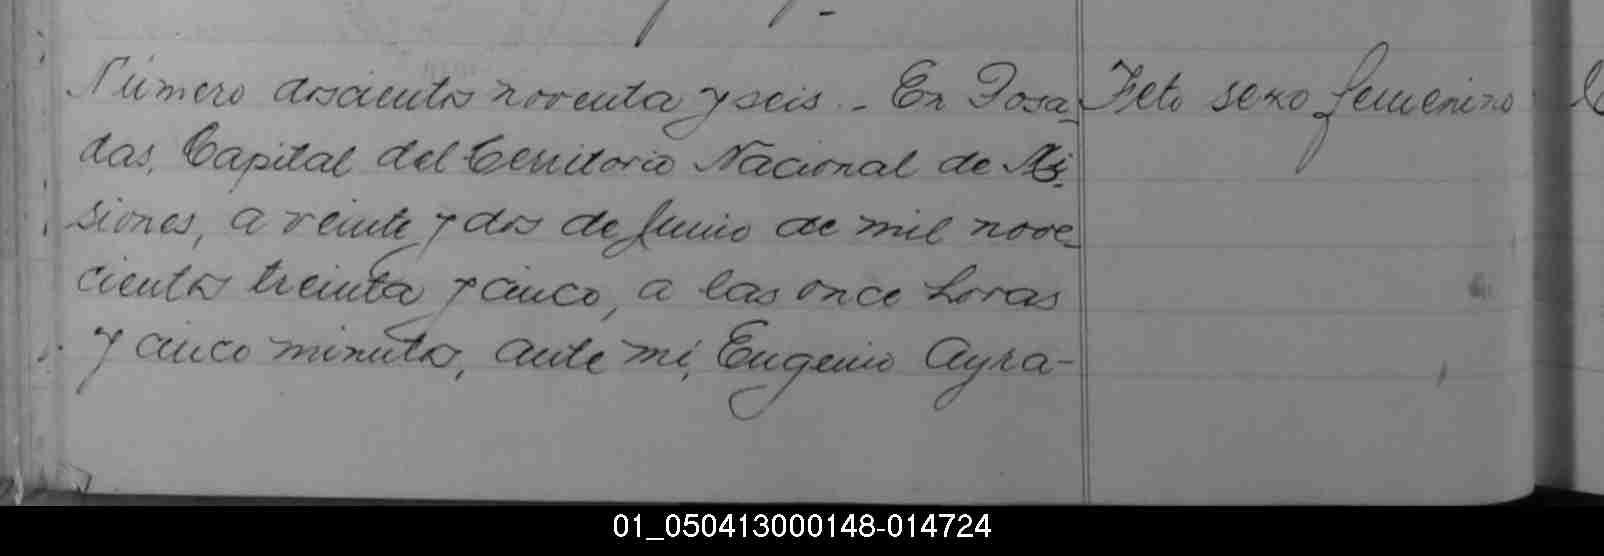 Número doscientos noventa y seis. - En Posa-
das, Capital del Territorio Nacional de Mi-
siones, a veinte y dos de Junio de mil nove-
cientos treinta y cinco, a las once horas
y cinco minutos, ante mí, Eugenio Ayra-
Feto sexo femenino
01_050413000148-014724